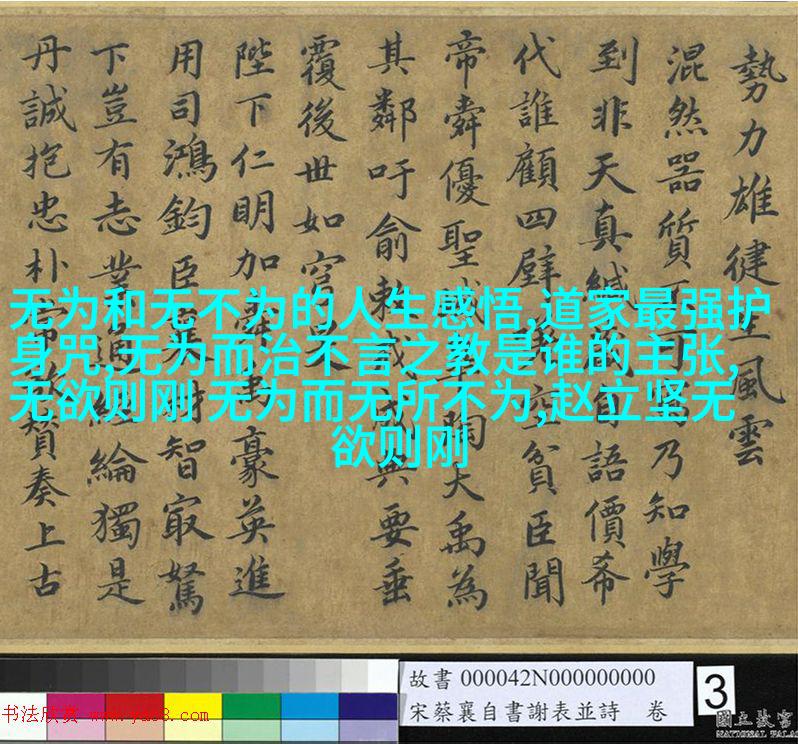 勢力雄徤生風雲
混然器質不可寫乃知學
到非天真緘藏自語價希
代誰顧四壁立貧臣聞
帝舜優聖陶大禹為
其鄰吁俞敕戒典要垂
覆後世如穹旻
陛下仁明加舜書豪英進
用司鴻鈞臣襄材智㝡駑
下豈有志業通經綸獨是
丹誠抱忠朴常欲贊奏上古
无为和无不为的人生感悟,道家最强护
身咒,无为而治不言之教是谁的主张,
无欲则刚 无为而无所不为,赵立坚无
欲则刚
故書 000042N000000000
宋蔡襄自書謝表並詩 卷
3
書法欣赏
國立故宮
NATIONAL PALA